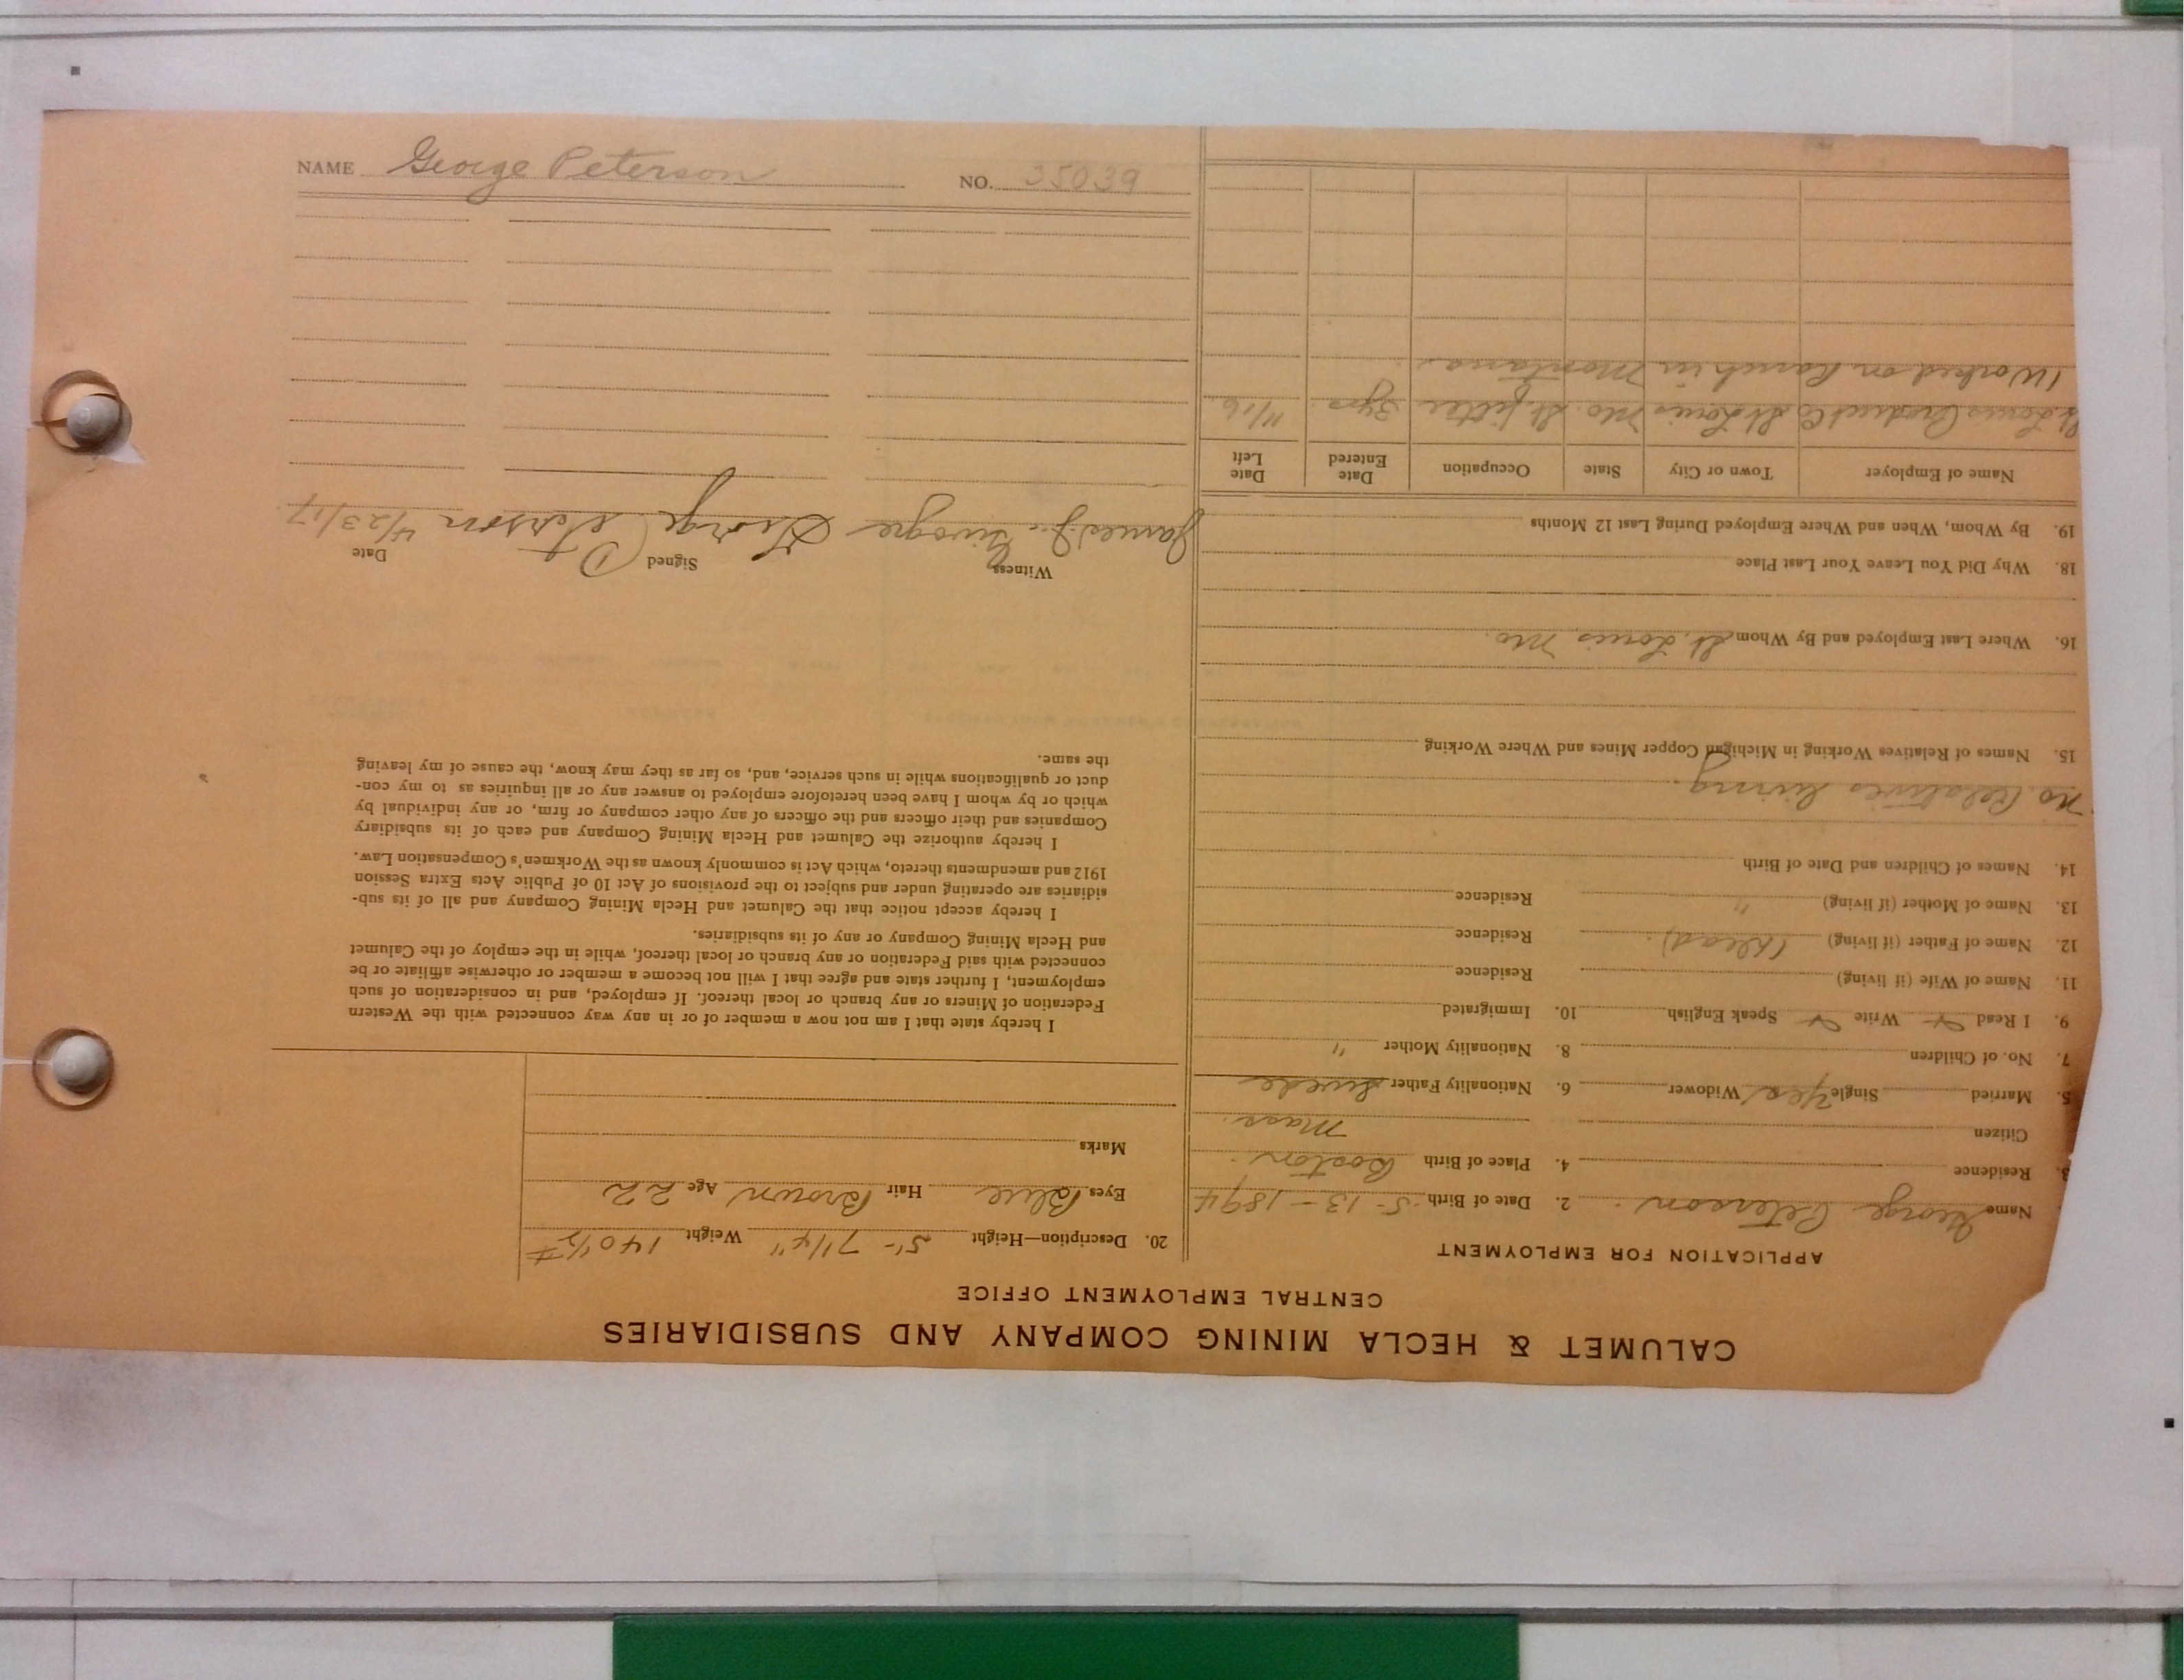 CALUMET & HECLA MINING COMPANY AND SUBSIDIARIES
CENTRAL EMPLOYMENT OFFICE
APPLICATION FOR EMPLOYMENT
Name George Peterson. 2. Date of Birth 5-13-1894
3. Residence 4. Place of Birth Boston.
Citizen Mass.
5. Married Single Yes Widower 6. Nationality Father Swede
7. No. of Children 8. Nationality Mother "
9. I Read Write Speak English 10. Immigrated
11. Name of Wife (if living) Residence
12. Name of Father (if living) (Dead). Residence
13. Name of Mother (if living) " Residence
14. Names of Children and Date of Birth
No. Relatives living.
15. Names of Relatives Working in Michigan Copper Mines and Where Working
16. Where Last Employed and By Whom St. Louis Mo.
18. Why Did You Leave Your Last Place
19. By Whom, When and Where Employed During Last 12 Months
Name of Employer Town or City State Occupation Date Entered Date Left
St Louis Product Co St Louis Mo. St. fitter 3yrs. 11/16
Worked on Ranch in Montana.
20. Description—Height 5'- 7 1/4" Weight 140 1/2 #
Eyes Blue Hair Brown Age 22
Marks
I hereby state that I am not now a member of or in any way connected with the Western
Federation of Miners or any branch or local thereof. If employed, and in consideration of such
employment, I further state and agree that I will not become a member or otherwise affiliate or be
connected with said Federation or any branch or local thereof, while in the employ of the Calumet
and Hecla Mining Company or any of its subsidiaries.
I hereby accept notice that the Calumet and Hecla Mining Company and all of its sub-
sidiaries are operating under and subject to the provisions of Act 10 of Public Acts Extra Session
1912 and amendments thereto, which Act is commonly known as the Workmen's Compensation Law.
I hereby authorize the Calumet and Hecla Mining Company and each of its subsidiary
Companies and their officers and the officers of any other company or firm, or any individual by
which or by whom I have been heretofore employed to answer any or all inquiries as to my con-
duct or qualifications while in such service, and, so far as they may know, the cause of my leaving
the same.
Witness Signed Date
James J. George Peterson 4/23/17.
NAME George Peterson NO. 35039